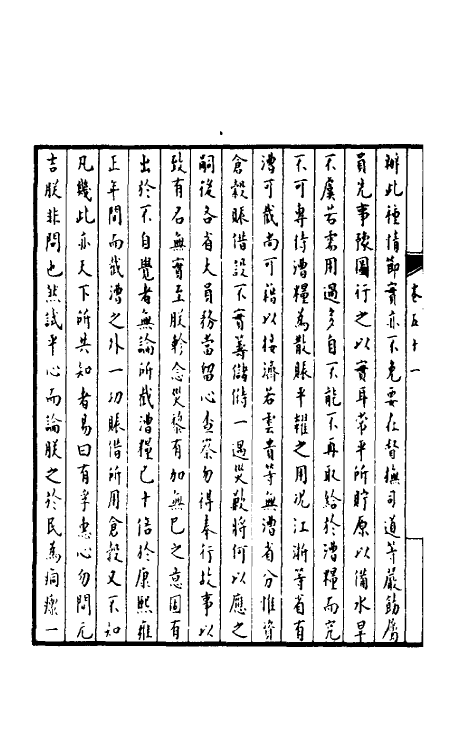 卷五十一
辦此種情節實亦不免要在督撫司道等嚴飭屬
員先事豫圖行之以實耳常平所貯原以備水旱
不虞若需用過多自不能不再取給於漕糧而究
不可專恃漕糧為散賑平糶之用况江浙等省有
漕可截尚可藉以接濟若雲貴等無漕省分惟資
倉穀賑借設不實籌儲偫一遇災歉將何以應之
嗣後各省大員務當留心查察勿得奉行故事以
致有名無實至朕軫念災黎有加無已之意固有
出於不自覺者無論所截漕糧已十倍於康熙雍
正年間而截漕之外一切賑借所用倉穀又不知
凡幾此亦天下所共知者易曰有孚惠心勿問元
吉朕非問也然試平心而論朕之於民為痌瘝一